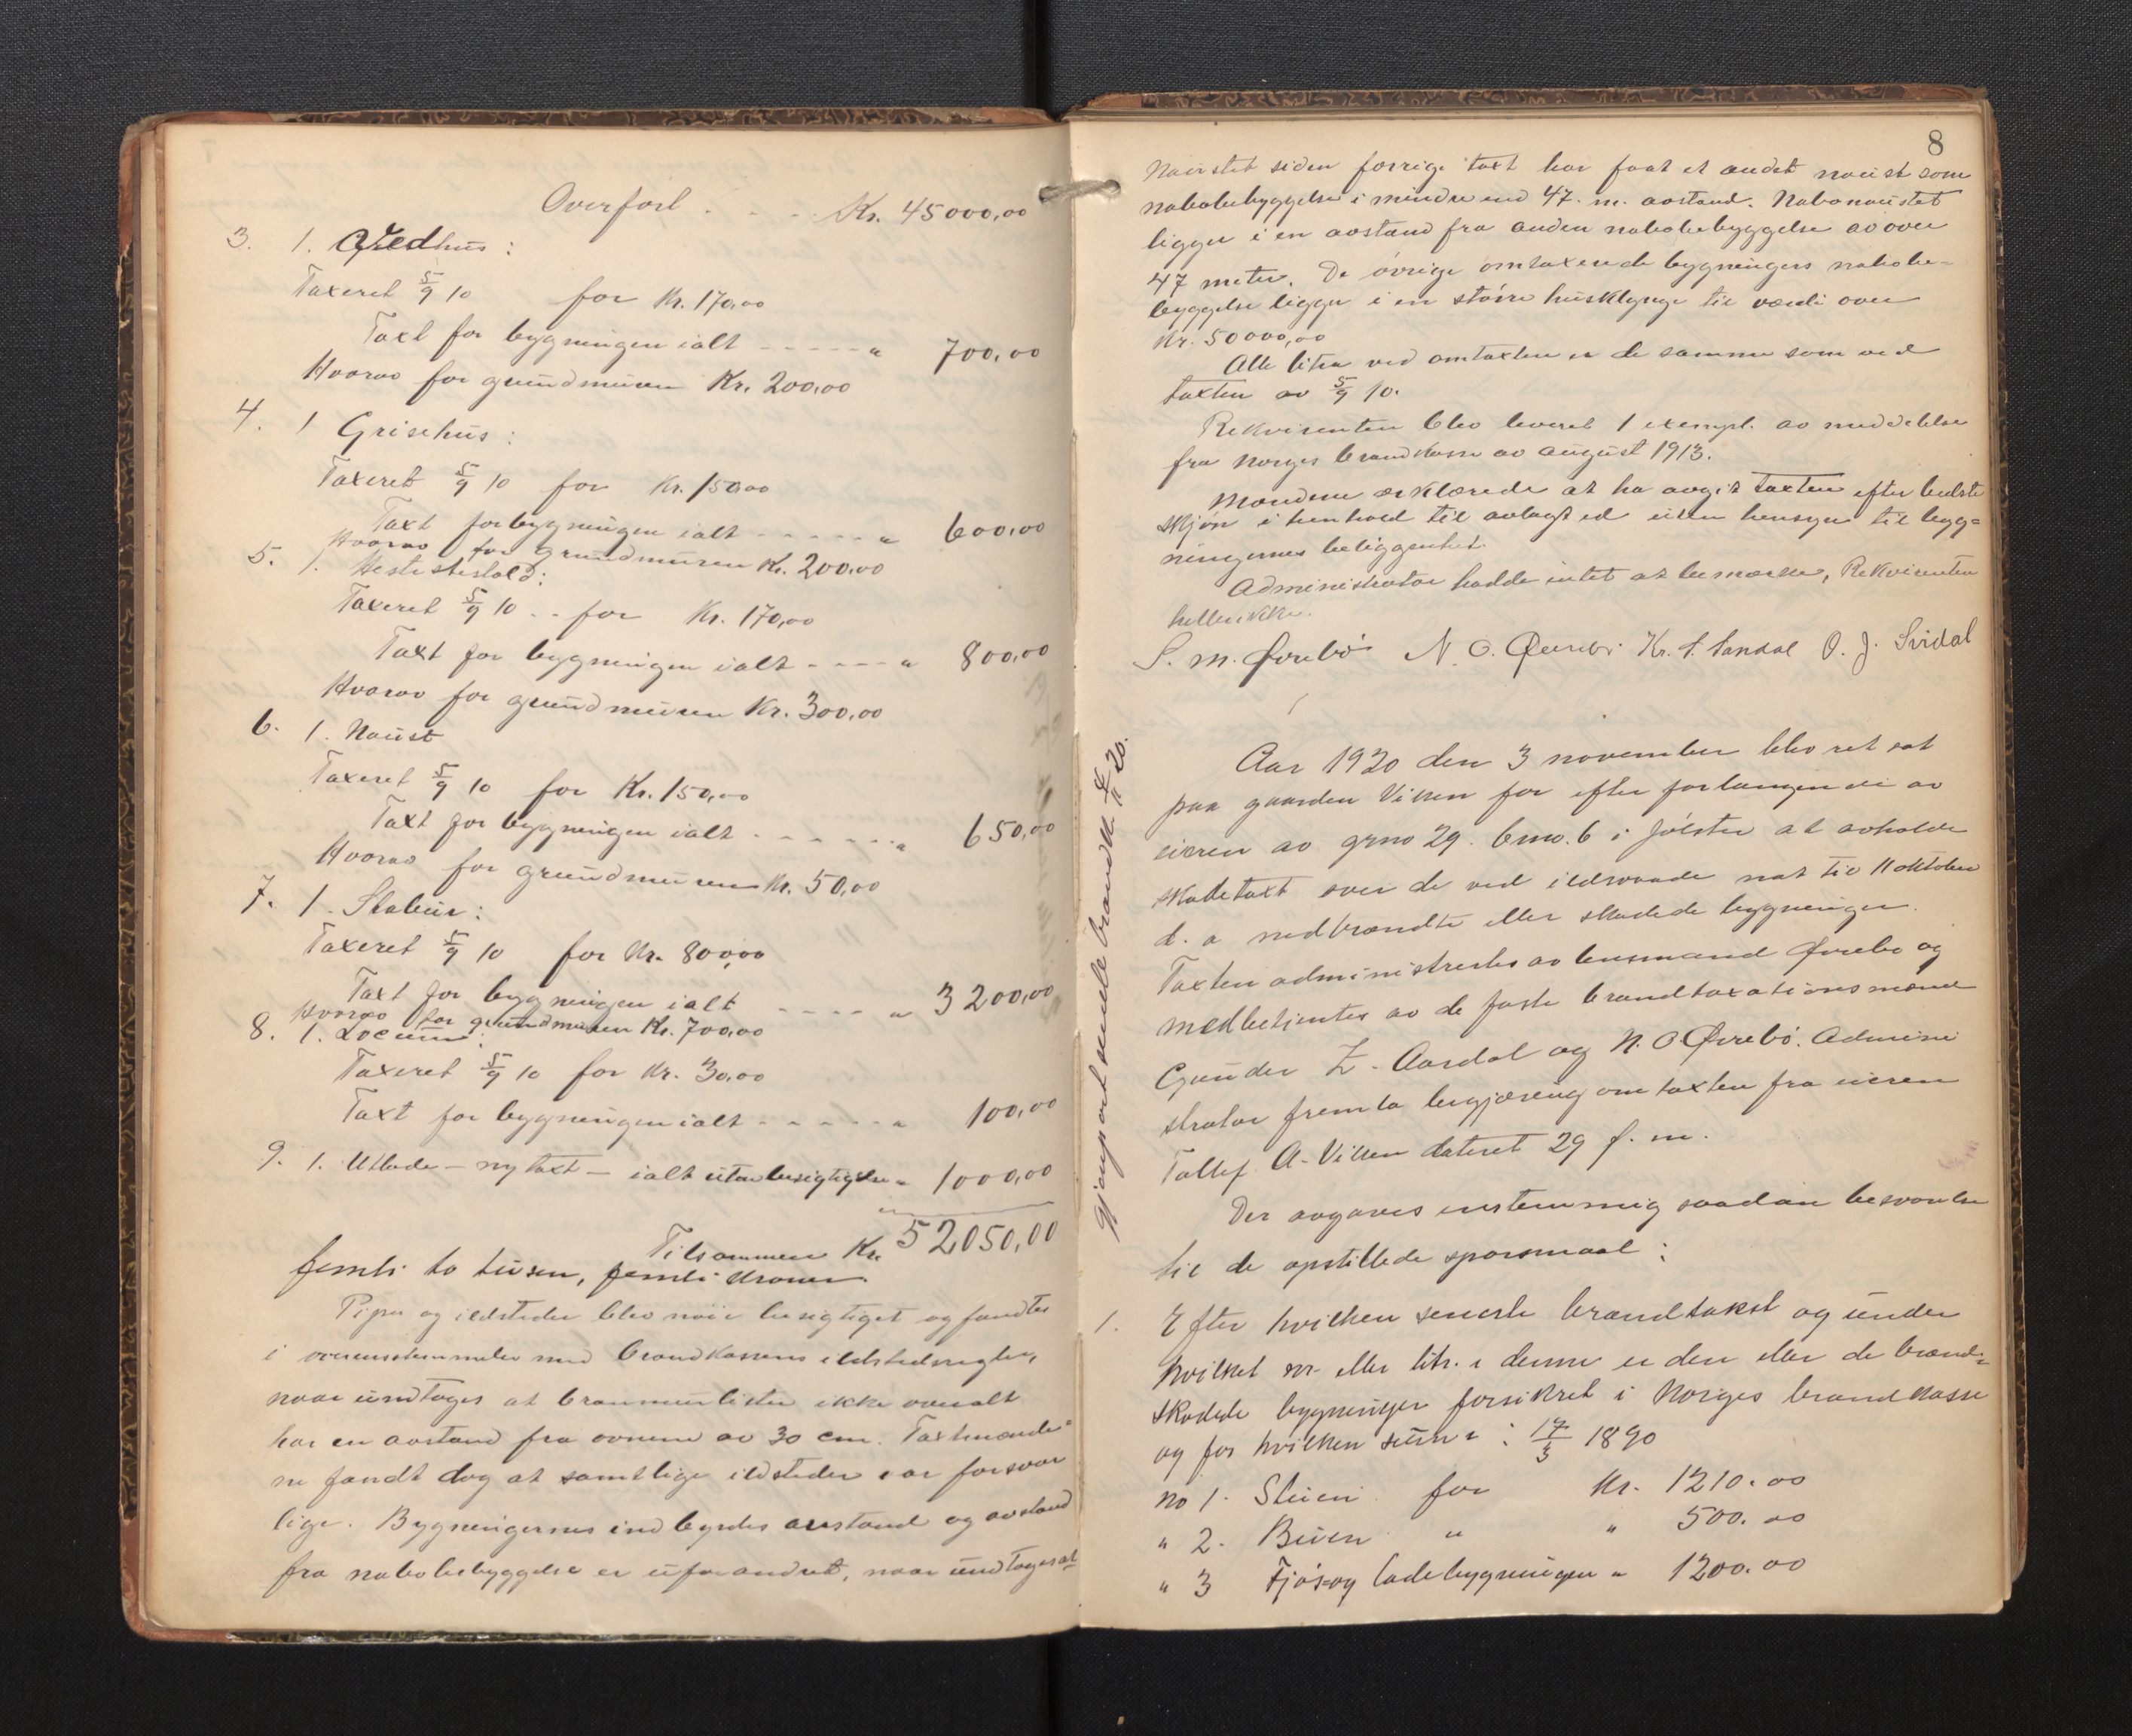 Overført . . . . Kr. 45000,00
3. 1. Vedhus:
Taxeret 5/9 10 for Kr. 170,00
Taxt for bygningen ialt - - - - - " 700,00
Hvorav for grundmuren Kr. 200,00
4. 1 Grisehus:
Taxeret 5/9 10 for Kr. 150,00
Taxt for bygningen ialt - - - - - " 600,00
Hvorav for grundmuren Kr. 200,00
5. 1. Hestestald:
Taxeret 5/9 10 - - for Kr. 170,00
Taxt for bygningen ialt - - - - " 800,00
Hvorav for grundmuren Kr. 300,00
6. 1. Naust
Taxeret 5/9 10 for Kr. 150,00
Taxt for bygningen ialt - - - - - " 650,00
Hvorav for grundmuren Kr. 50,00
7. 1. Stabur:
Taxeret 5/9 10 for Kr. 800,00
Taxt for bygningen ialt - - - - " 3200,00
Hvorav for grundmuren Kr. 700,00
8. 1. Locum:
Taxeret 5/9 10 for Kr. 30,00
Taxt for bygningen ialt - - - - - " 100,00
9. 1. Utlade - ny taxt - ialt uten besigtigelse " 1000,00
Tilsammen Kr. 52050,00
femti to tusen, femti kroner.
Piper og ildsteder blev nøie besigtiget og fandtes
i overensstemmelse med brandkassens ildstedsregler,
naar undtages at brammerlister ikke overalt
har en avstand fra ovnene av 30 cm. Taxtmænde-
ne fandt dog at samtlige ildsteder var forsvar
lige. Bygningernes indbyrdes avstand og avstand
fra nabobebyggelse er uforandret, naar undtages at
8
Naustet siden forrige taxt har faat et andet naust som
nabobebyggelse i mindre end 47. m. avstand. Nabonaustet
ligger i en avstand fra anden nabobebyggelse av over
47 meter. De øvrige omtaxerede bygningers nabobe-
byggelse ligger i en større husklynge til værdi over
Kr. 50000,00
Alle litra ved omtaxten er de samme som ved
taxten av 5/9 10.
Rekvirenten blev leveret 1 exempl. av meddelelse
fra Norges brandkasse av august 1913.
Mændene erklærede at ha avgit taxten efter bedste
skjøn i henhold til avlagt ed uten hensyn til byg-
ningernes beliggenhet.
Administrator hadde intet at bemærke, Rekvirenten
heller ikke.
S. M. Ørebø N. O. Ørebø. Kr. S. Sandal O. J. Svidal
Gjenpart sendt brandk. 4/11 20.
Aar 1920 den 3 november blev ret sat
paa gaarden Viken for efter forlangende av
eieren av grno 29. bno. 6 i Jølster at avholde
skadetaxt over de ved ildsvaade nat til 11 oktober
d. a nedbrændte eller skadede bygninger.
Taxten administreredes av lensmand Ørebø og
medbetjentes av de faste brandtaxationsmænd
Gunder Z. Aardal og N. O. Ørebø. Admini
strator fremla begjæring om taxten fra eieren
Tollef A. Viken dateret 29 f. m.
Der avgaves enstemmig saadan besvarelse
til de opstillede spørsmaal:
1. Efter hvilken seneste brandtakst og under
hvilket nr. eller litr. i denne er den eller de brand-
skadede bygninger forsikret i Norges brandkasse
og for hvilken sum: 17/3 1890
no 1. Stuen for Kr. 1210.00
" 2. Buen " " 500.00
" 3 Fjøs og ladebygningen " 1200.00